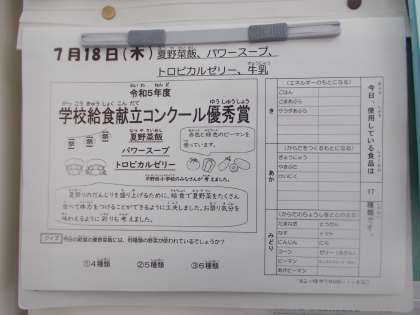 7月18日(木) 夏野菜飯、パワースープ、
トロピカルゼリー、牛乳
令和5年度
学校給食献立コンクール優秀賞
夏野菜飯
パワースープ
トロピカルゼリー
赤色と緑色のピーマンを
使っています。
夏祭りのだんじりを盛り上げるために、給食で夏野菜をたくさん
食べて体力をつけることができるように工夫しました。お祭り気分を
味わえるように彩りも考えました。
クイズ 今日の給食の夏野菜飯には、何種類の野菜が使われているでしょうか?
①4種類 ②5種類 ③6種類
今日、使用している食品は 17 種類です。
き
(エネルギーのもとになる)
ごはん
ごまあぶら
サラダあぶら
あか
(からだをつくるもとになる)
ぎゅうにゅう
やきぶた
だいにく
みどり
(からだのちょうしをととのえる)
たまねぎ とうがん
なす トマト
にんじん にら
コーン
ピーマン
あかピーマン